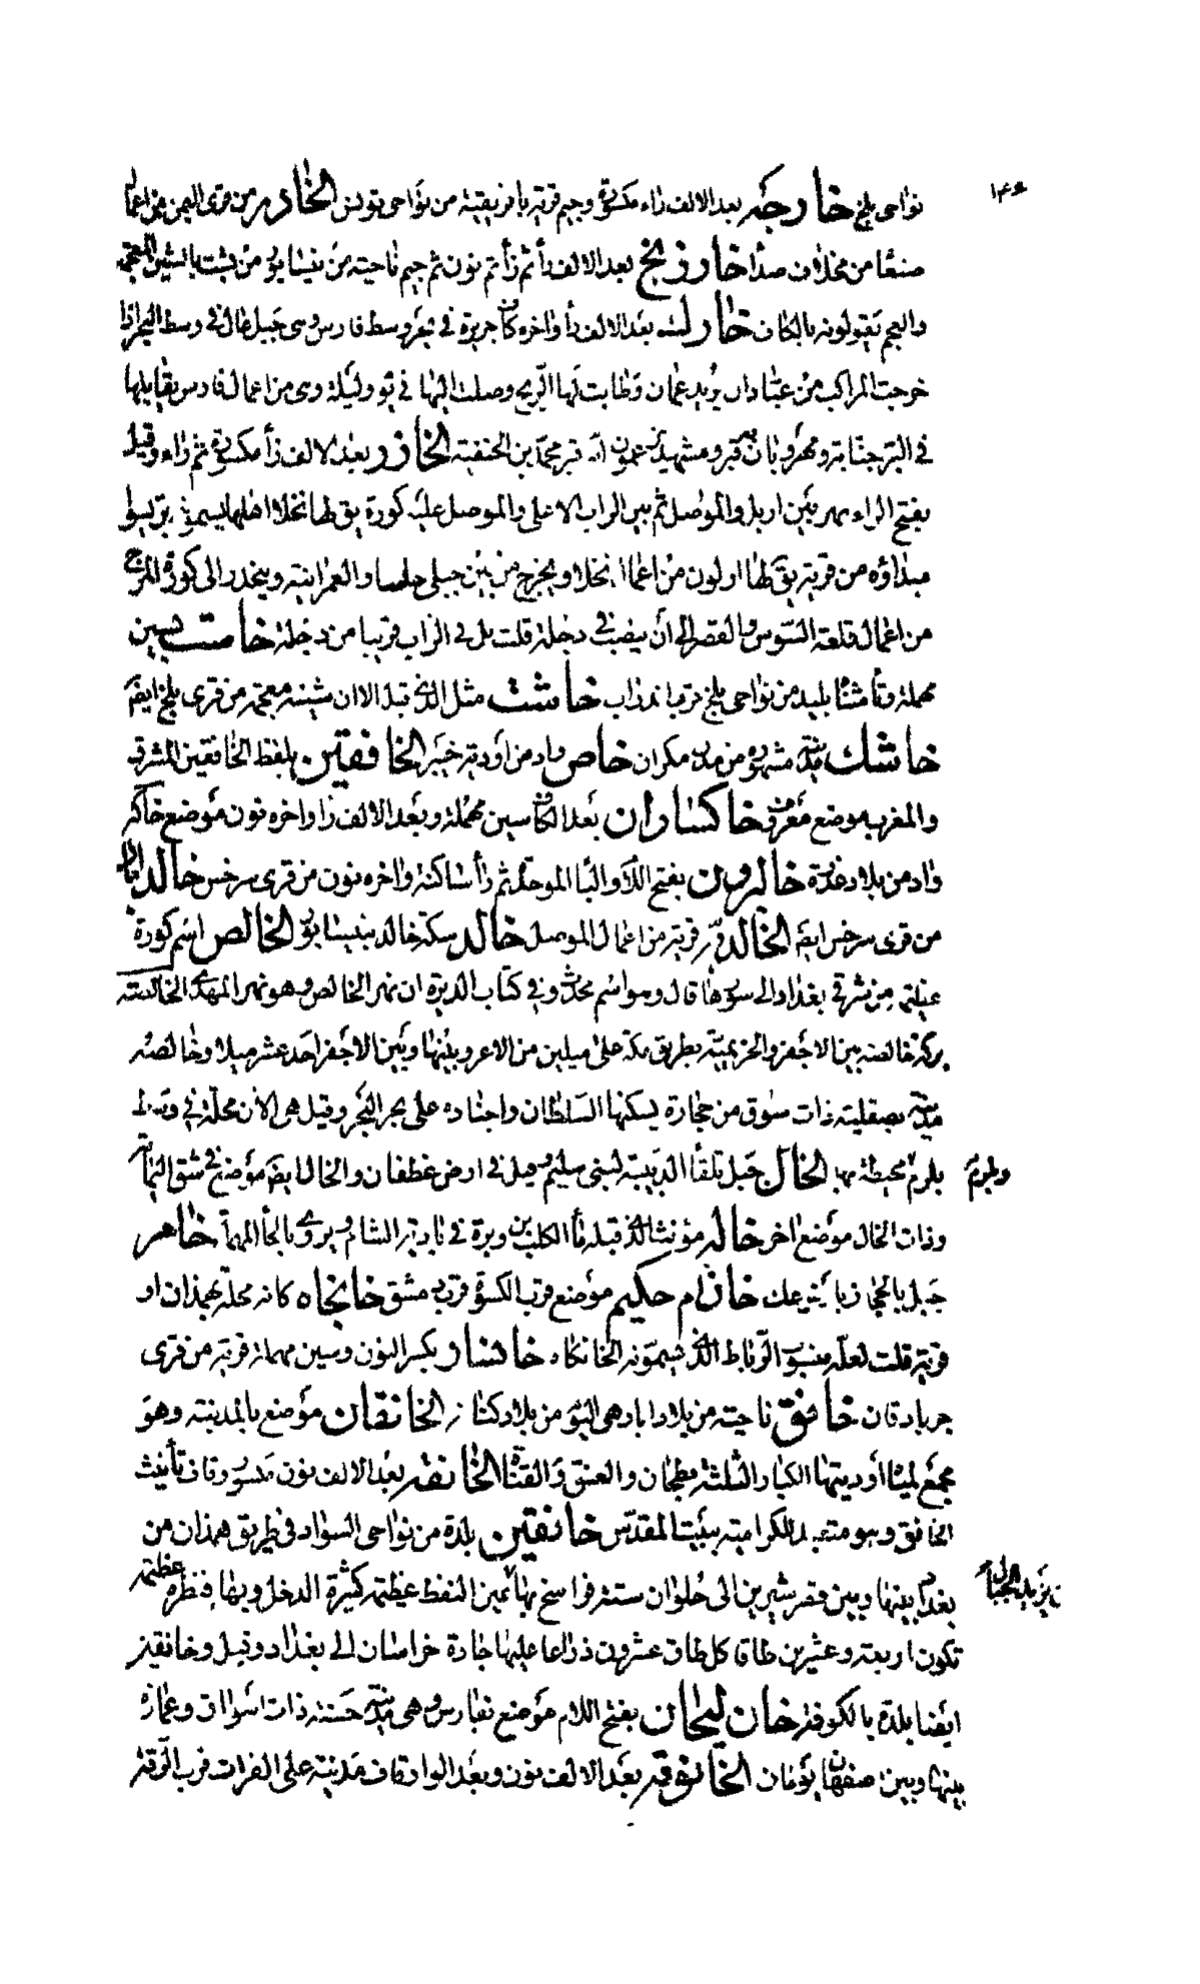 ١٤٤
نواحى بلخ خارجه بعد الالف راء مكسورة وجيم قرية بافريقية من نواحى تونس الخادر من قرى اليمن من اعمال
صنعا من مخلاف صدا خارزنج بعد الالف رأ ثم زأ ثم نون ثم جيم ناحية من نيسابور من بشت بالشين المعجمة
والعجم يقولونه بالكاف خارك بعد الالف رأ واخره كاف جزيرة فى بحر وسط فارس وهى جبل عال فى وسط البحر اذا
خرجت المراكب من عبادان يريد عمان وطابت لها الريح وصلت اليها فى يوم وليلة وهى من اعمال فارس يقابلها
فى البر جنابة ومهروبان قبر ومشهد يزعمون انه قبر محمد بن الحنفية الخازر بعد الالف زأ مكسورة ثم راء وقيل
بفتح الزاء نهر بين اربل والموصل ثم بين الزاب الاعلى والموصل عليه كورة يق لها نخلا اهلها يسمونه بريسوا
مبداؤه من قرية يق لها اربون من اعمال نخلا ويخرج من بين جبلى والعمرانية وينحدر الى كورة المرج
من اعمال قلعة الشوس والعقر الى أن يصب فى دجلة قلت بل فى الزاب قريبا من دجلة خاست بسين
مهملة وتأ مثناة بليد من نواحى بلخ قرب اندراب خاشت مثل الذى قبله الا ان شينه معجمة من قرى بلخ ايضا
خاشك مدينة مشهورة من مدن مكران خاص واد من اودية خيبر الخافقين بلفظ الخافقين المشرق
والمغرب موضع معروف خاكساران بعد الكاف سين مهملة وبعد الالف را واخره نون موضع خاكه
واد من بلاد عذرة خالبرزن بفتح اللام والبا الموحدة ثم رأ ساكنة واخره نون من قرى سرخس خالداباد
من قرى سرخس ايضا الخالدية قرية من اعمال الموصل خالد سكة خالد بنيسابور الخالص اسم كورة
عظيمة من شرقى بغداد الى سورها قال وهو اسم محدث وفى كتاب الديرة ان نهر الخالص هو نهر المهدى الخالصة
بركة خالصة بين الاجفر والخزيمية بطريق مكة على ميلين من الاغر وبينها وبين الاجفر احد عشر ميلا وخالصة
مدينة بصقلية ذات سوق من حجارة يسكنها السلطان واجناده على بحر البحر وقيل هى الان محلة فى وسط
بلرم محيطة بها الخال جبل تلقأ الدثينة لبنى سليم وقيل فى ارض غطفان والخال ايضا موضع فى شق اليمامة
وبلرم
وذات الخال موضع اخر خاله مؤنث الذى قبله مأ لكلب بن وبرة فى بادية الشام ويروى بالحأ المهملة خاهر
جبل بالحجاز بأرض عك خان ام حكيم موضع قرب الكسوة قرب دمشق خانجاه كانه محلة بهمذان او
قرية قلت لعله منسوب الى الرباط الذى يسمونه الخانكاه خانسار بكسر النون وسين مهملة قرية من قرى
جرباذقان خانق ناحية من بلاد اياد هى اليوم من بلاد كنانة الخانقان موضع بالمدينة وهو
مجمع لمياه أوديتها الكبار الثلثة بطحان والعقيق والقناة الخانقه بعد الالف نون مكسورة وقاف تأنيث
الخانق وهو متعبد للكرامية ببيت المقدس خانقين بلدة من نواحى السواد فى طريق همذان من
بغداد بينها وبين قصر شيرين الى حلوان ستة فراسخ بها عين النفط عظيمة كثيرة الدخل وبها قنطرة عظيمة
تكون اربعة وعشرين طاقا كل طاق عشرون ذراعا عليها جادة خراسان الى بغداد وقيل وخانقين
ايضا بلدة بالكوفة خان لنجان بفتح اللام موضع بفارس وهى مدينة حسنة ذات اسواق وعمارة
بينها وبين اصفهان يومان الخانوقة بعد الالف نون وبعد الواو قاف مدينة على الفرات قرب الرقة